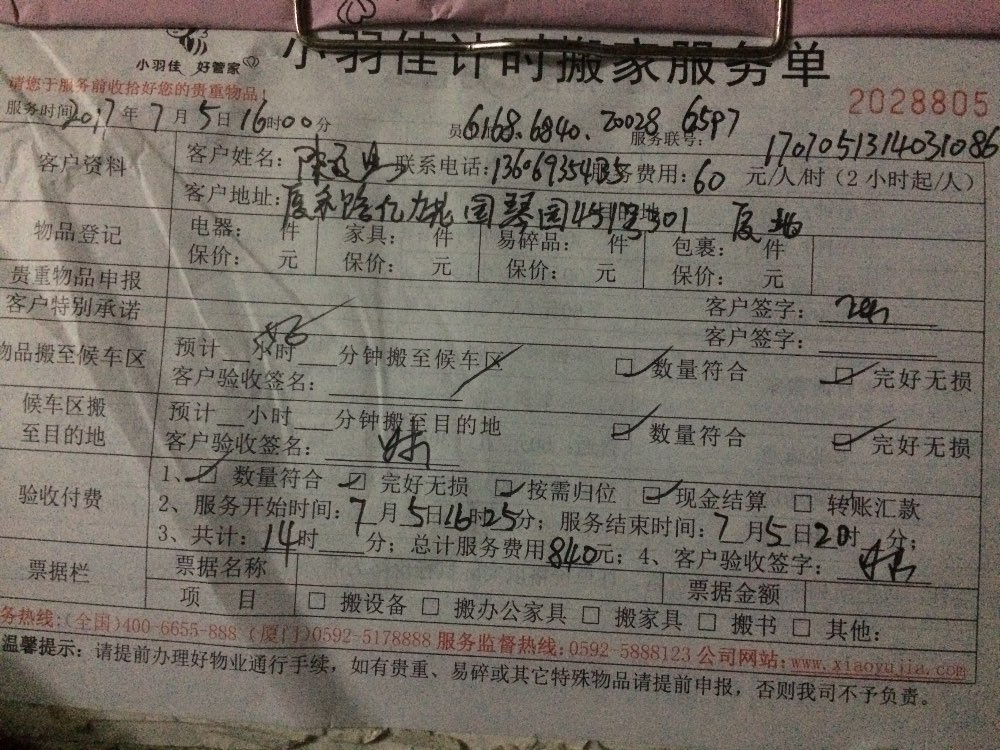 小羽佳 好管家
小羽佳计时搬家服务单
请您于服务前收拾好您的贵重物品！
2028805
服务时间 2017年7月5日16时00分 员 6168.6840.20028 6597 服务联号：
1707051314031086
客户资料 客户姓名：陈 联系电话：服务费用：60 元/人/时（2 小时起/人）
客户地址：厦禾路亿 园琴园 301 厦
物品登记 电器： 件 家具： 件 易碎品： 件 包裹： 件
保价： 元 保价： 元 保价： 元 保价： 元
贵重物品申报 客户签字：
客户特别承诺 客户签字：
物品搬至候车区 预计 小时 分钟搬至候车区 □ 数量符合 □ 完好无损
客户验收签名：
候车区搬至目的地 预计 小时 分钟搬至目的地 □ 数量符合 □ 完好无损
客户验收签名：
验收付费 1、□ 数量符合 □ 完好无损 □ 按需归位 □ 现金结算 □ 转账汇款
2、服务开始时间：7月5日16时25分；服务结束时间：7月5日20时 分；
3、共计：14时 分；总计服务费用840元；4、客户验收签字：
票据栏 票据名称 票据金额
项 目 □ 搬设备 □ 搬办公家具 □ 搬家具 □ 搬书 □ 其他：
务热线:(全国)400-6655-888 (厦门)0592-5178888 服务监督热线:0592-5888123 公司网站:www.xiaoyujia.com
温馨提示：请提前办理好物业通行手续，如有贵重、易碎或其它特殊物品请提前申报，否则我司不予负责。